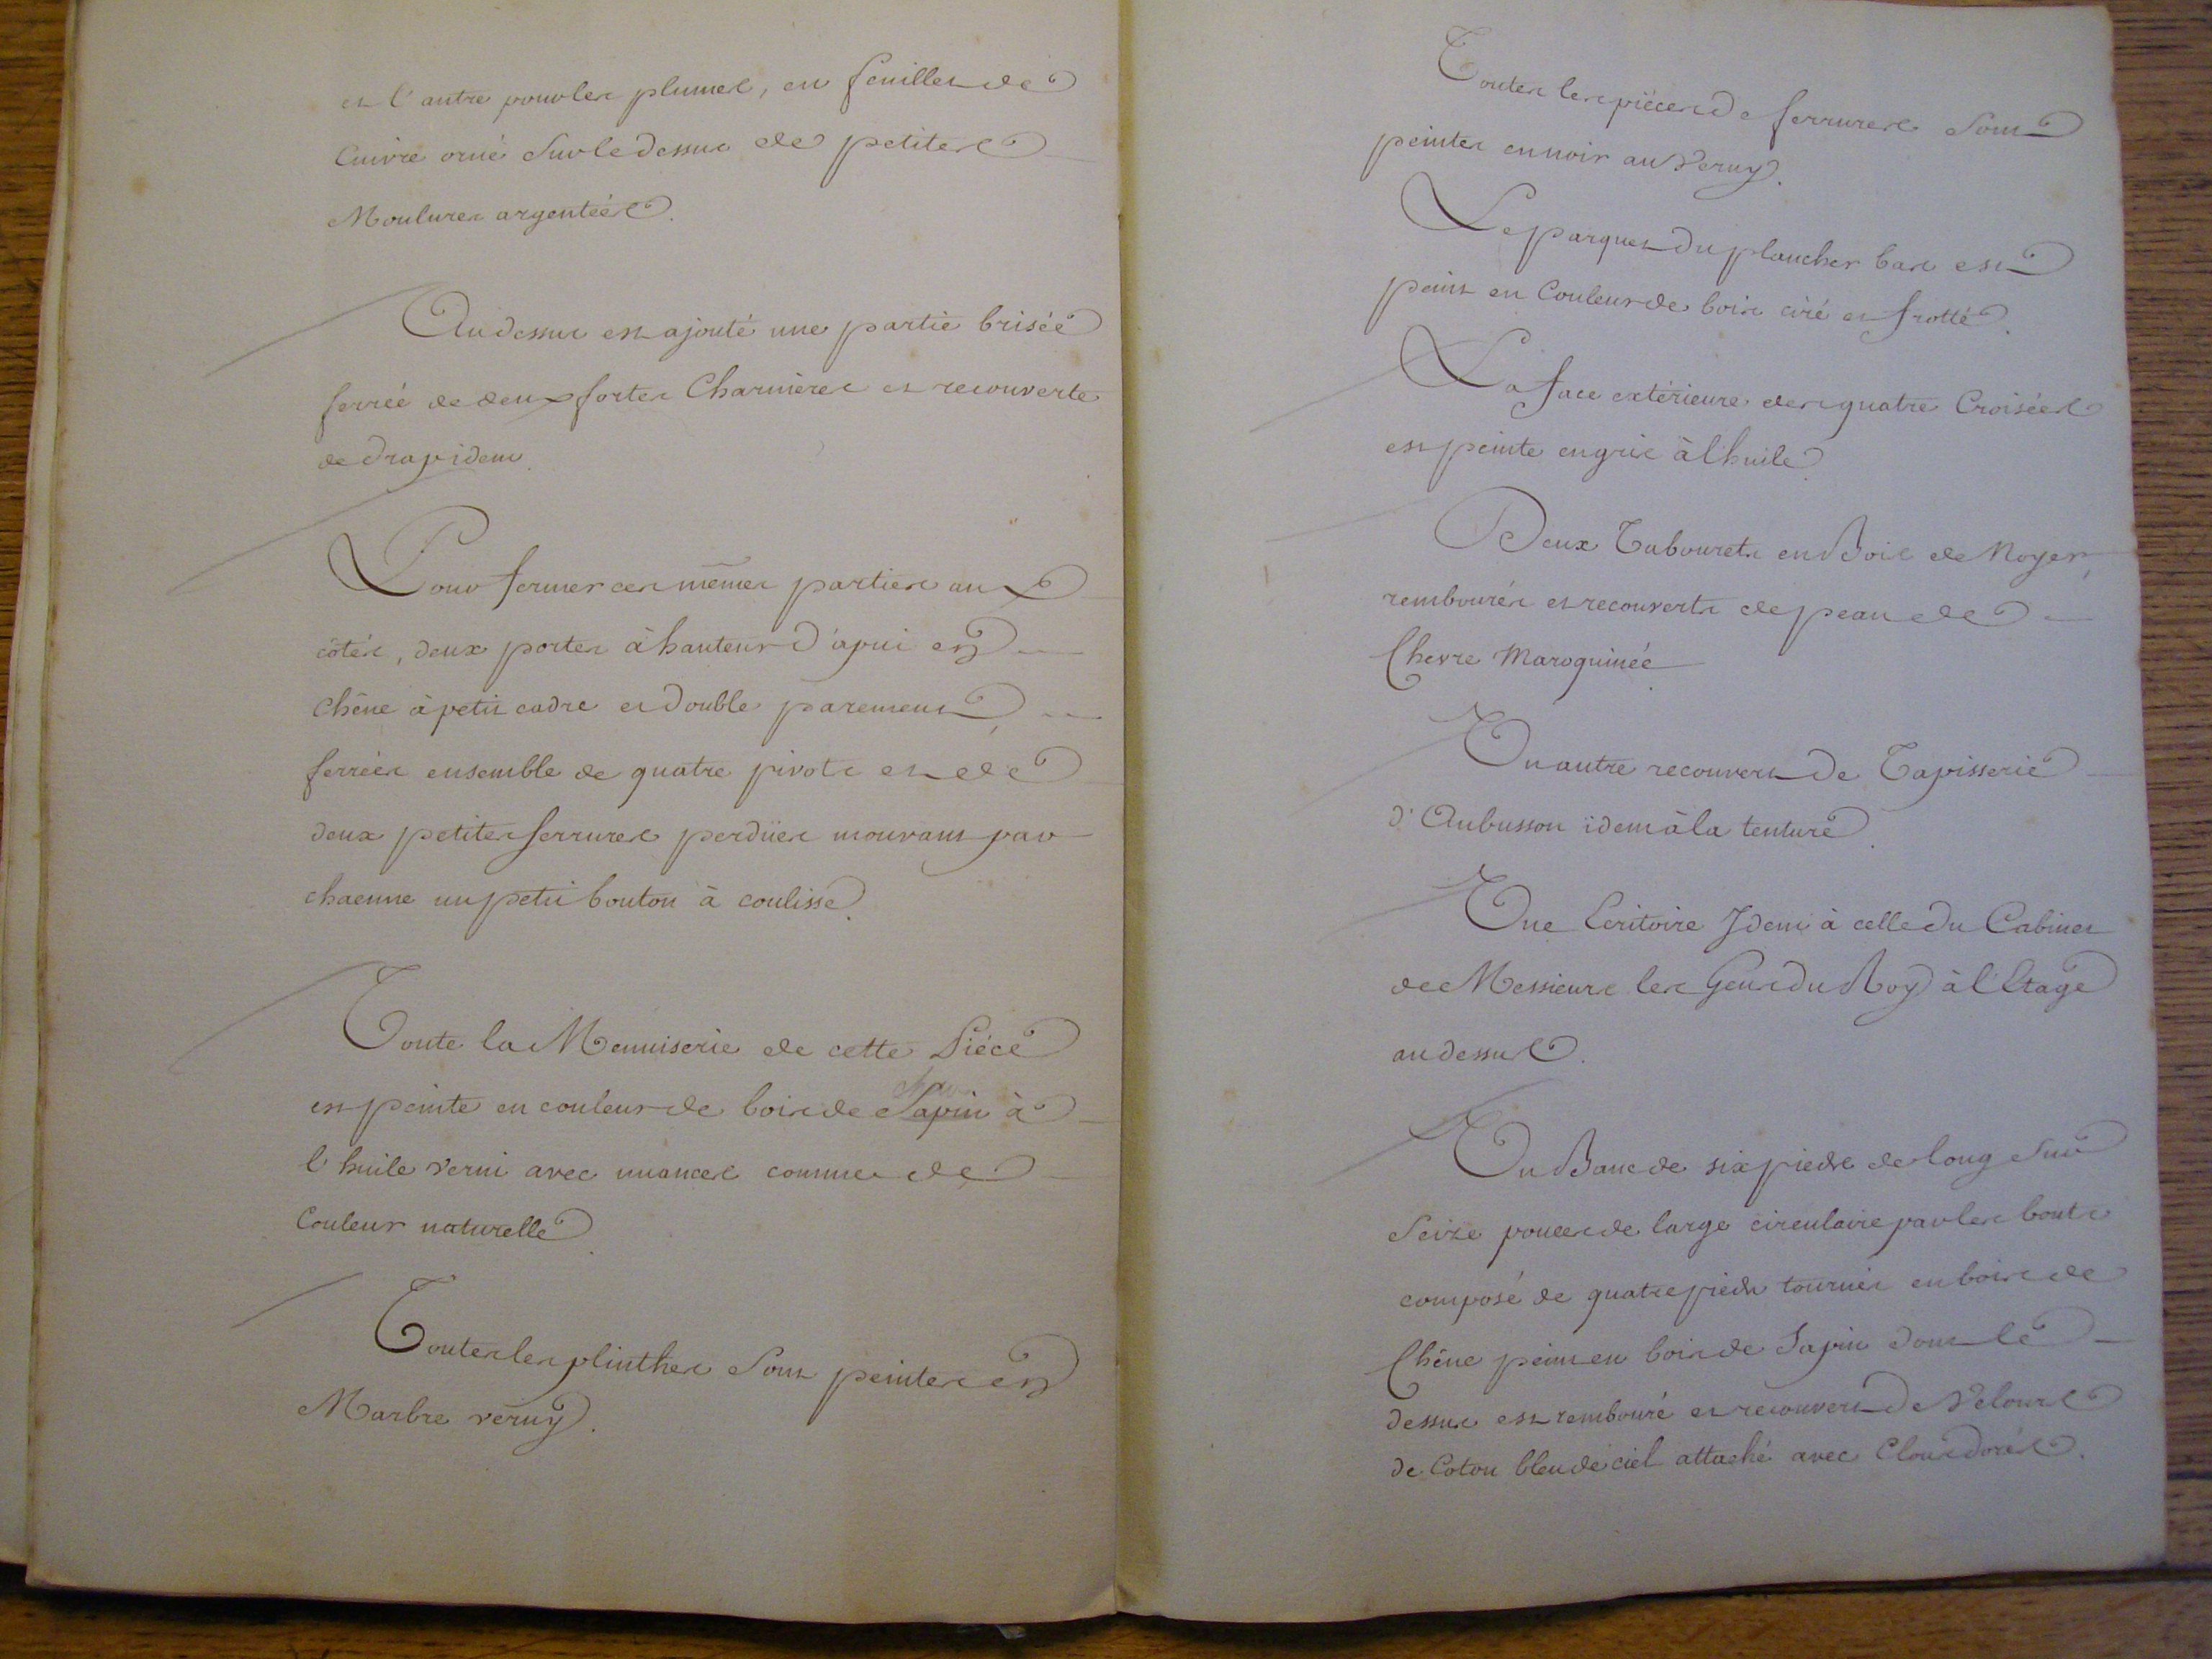 et l'autre pour les plumes, en feuilles de
Cuivre orné Sur le dessus de petites
Moulures argentées.
Au dessus est ajouté une partie brisée
ferrée de deux fortes Charnières et recouverte
de drap idem.
Pour fermer ces mêmes parties aux
côtés, deux portes à hauteur d'apui en
Chêne à petit cadre et double parement,
ferrées ensemble de quatre pivots et de
deux petites serrures perdües mouvant par
chacune un petit bouton à coulisse.
Toute la Menuiserie de cette Piéce
est peinte en couleur de bois de Sapin à
l'huile verni avec nuances comme de
Couleur naturelle.
Toutes les plinthes Sont peintes en
Marbre verny.
Toutes les pièces de ferrures Sont
peintes en noir au Verny.
Le parquet du plancher bas est
peint en Couleur de bois ciré et frotté.
La face extérieure des quatre Croisées
est peinte en gris à l'huile.
Deux Tabourets en Bois de Noyer,
rembourés et recouverts de peau de
Chevre Maroquinée.
Un autre recouvert de Tapisserie
d'Aubusson idem à la tenture.
Une Ecritoire Idem à celle du Cabinet
de Messieurs les Gens du Roy à l'Etage
au dessus.
Un Banc de six pieds de long Sur
Seize pouces de large circulaire par les bouts
composé de quatre pieds tournés en bois de
Chêne peint en bois de Sapin dont le
dessus est rembouré et recouvert de Velours
de Coton bleu de ciel attaché avec Clous dorés.